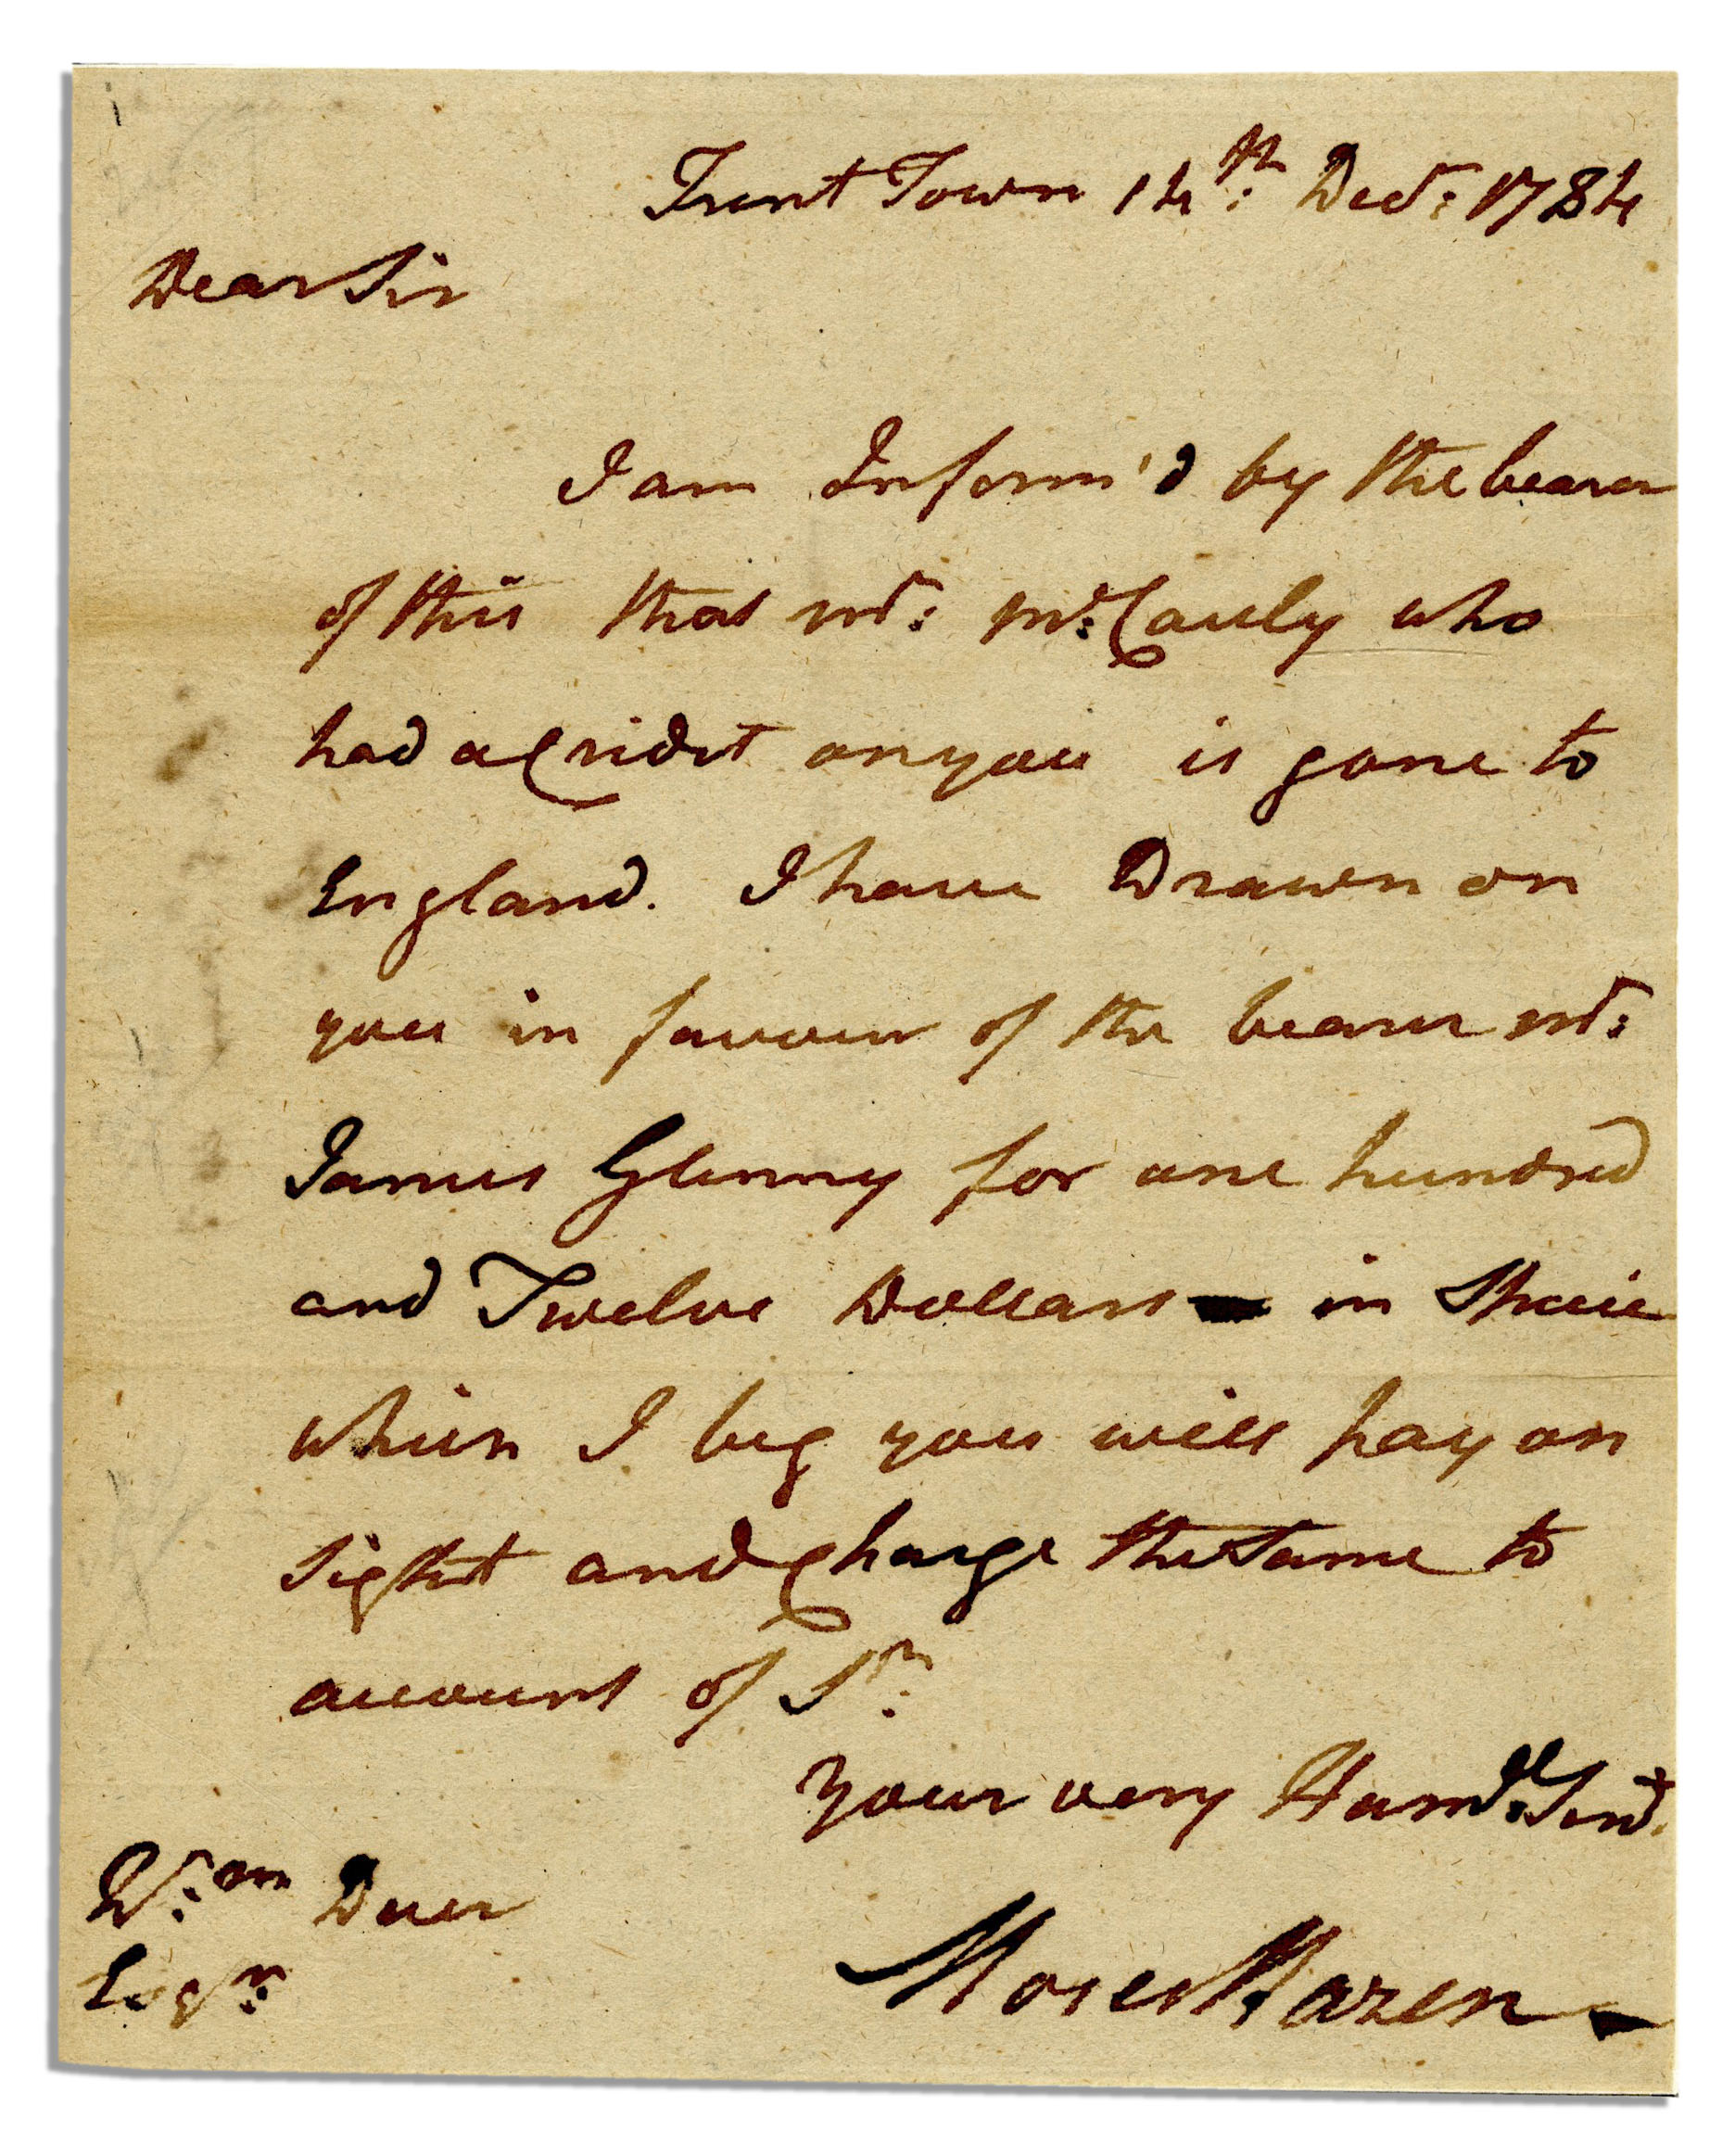 Trent Town 14th: Decr: 1784
Dear Sir
I am Inform'd by the bearer
of this that Mr: Mc:Cauly who
had a Cridit on you is gone to
England. I have Drawn on
you in favour of the bearer Mr:
James Glenny for one hundred
and Twelve Dollars in Specie
which I beg you will pay on
sight and Charge the Same to
account of Sr:
Your very Humble: Servt.
W:m Duer
Esqr:
Moses Hazen